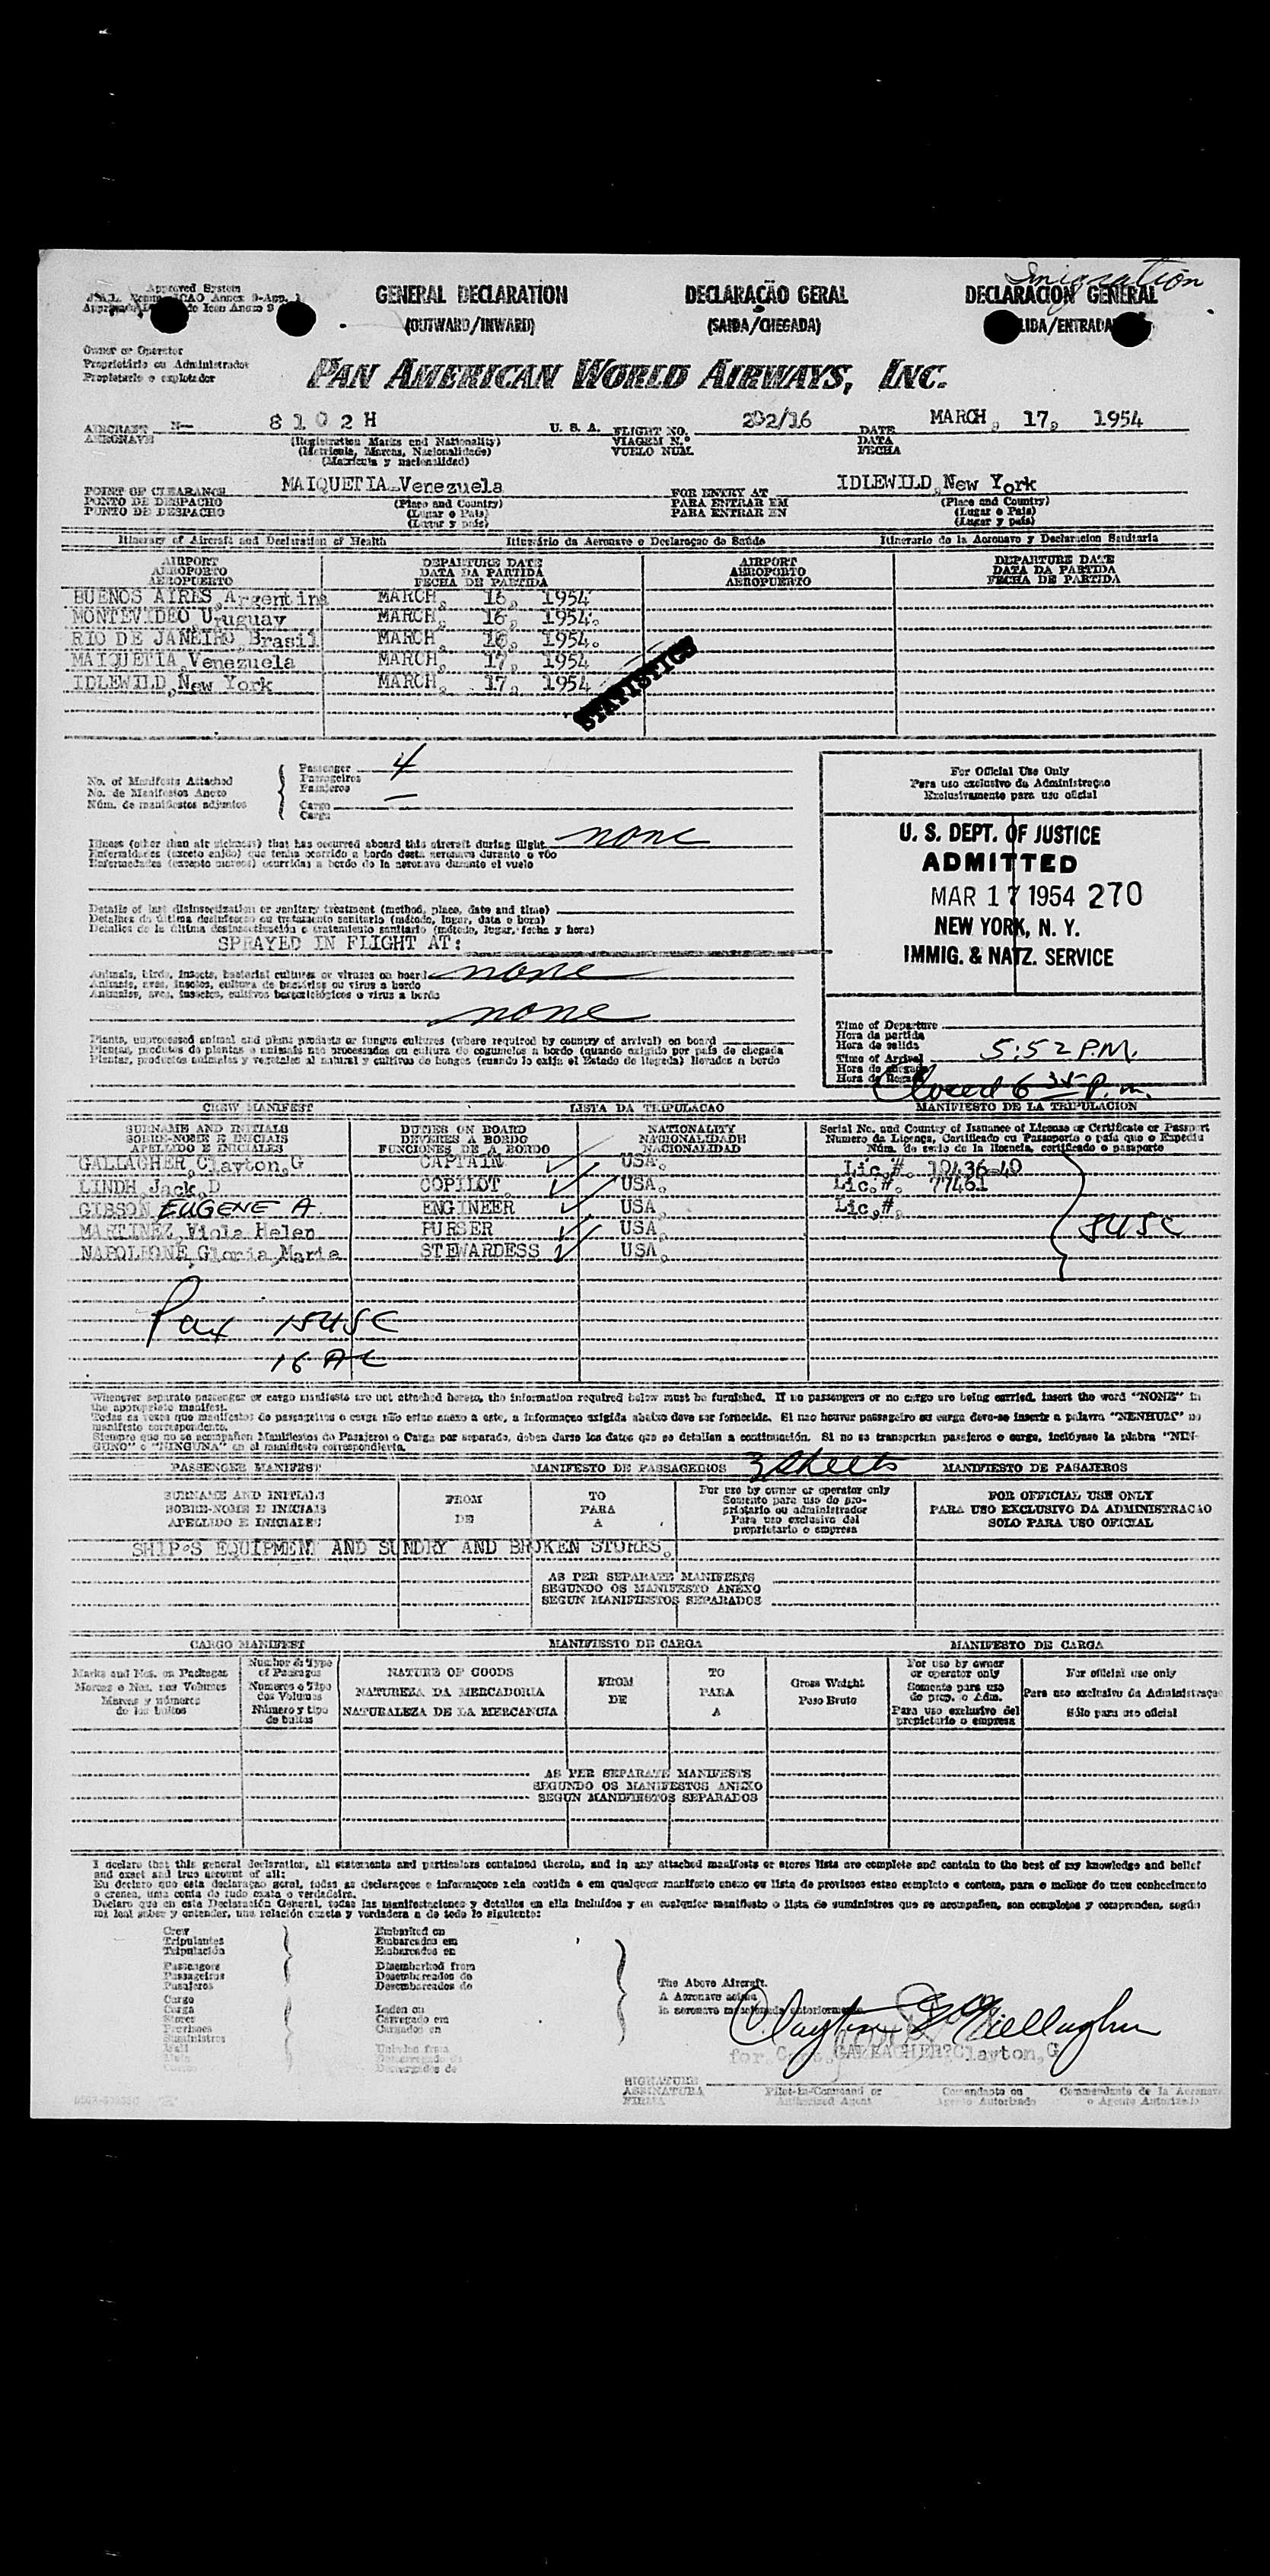 Imigration
Approved System
GENERAL DECLARATION DECLARAÇÃO GERAL DECLARACION GENERAL
(OUTWARD/INWARD) (SAIDA/CHEGADA) LIDA/ENTRADA
Owner or Operator
Proprietário ou Administrador
Propietario o explotador
PAN AMERICAN WORLD AIRWAYS, INC.
AIRCRAFT N— 8102H U. S. A. FLIGHT NO. 202/16 DATE MARCH, 17, 1954
AERONAVE (Registration Marks and Nationality) VIAGEM N.º DATA
(Matricula, Marcas, Nacionalidade) VUELO NUM. FECHA
(Matricula y nacionalidad)
POINT OF CLEARANCE MAIQUETIA Venezuela FOR ENTRY AT IDLEWILD, New York
PONTO DE DESPACHO (Place and Country) PARA ENTRAR EM (Place and Country)
PUNTO DE DESPACHO (Lugar e Pais) PARA ENTRAR EN (Lugar e Pais)
(Lugar y pais) (Lugar y pais)
Itinerary of Aircraft and Declaration of Health Itinerário da Aeronave e Declaraçao de Saúde Itinerario de la Aeronave y Declaracion Sanitaria
AIRPORT DEPARTURE DATE AIRPORT DEPARTURE DATE
AEROPORTO DATA DA PARTIDA AEROPORTO DATA DA PARTIDA
AEROPUERTO FECHA DE PARTIDA AEROPUERTO FECHA DE PARTIDA
BUENOS AIRES, Argentina MARCH, 16, 1954.
MONTEVIDEO, Uruguay MARCH, 16, 1954.
RIO DE JANEIRO, Brasil MARCH, 16, 1954.
MAIQUETIA, Venezuela MARCH, 17, 1954
IDLEWILD, New York MARCH, 17, 1954
STATISTICS
No. of Manifests Attached
No. de Manifestos Anexo
Núm. de manifiestos adjuntos
Passenger 4
Passageiros
Pasajeros
Cargo —
Carga
For Official Use Only
Para uso exclusivo da Administraçao
Exclusivamente para uso oficial
U. S. DEPT. OF JUSTICE
ADMITTED
MAR 17 1954 270
NEW YORK, N. Y.
IMMIG. & NATZ. SERVICE
Illness (other than air sickness) that has occurred aboard this aircraft during flight none
Enfermidades (exceto enjôo) que tenha ocorrido a bordo desta aeronave durante o vôo
Enfermedades (excepto mareos) ocurridas a bordo de la aeronave durante el vuelo
Details of last disinsectization or sanitary treatment (method, place, date and time)
Detalhes da última desinfecçao ou tratamento sanitário (método, lugar, data e hora)
Detalles de la última desinsectización o tratamiento sanitario (método, lugar, fecha y hora)
SPRAYED IN FLIGHT AT:
Animals, birds, insects, bacterial cultures or viruses on board none
Animais, aves, insetos, cultura de bactérias ou virus a bordo
Animales, aves, insectos, cultivos bacteriológicos o virus a bordo
none
Plants, unprocessed animal and plant products or fungus cultures (where required by country of arrival) on board
Plantas, produtos de plantas e animais nao processados ou cultura de cogumelos a bordo (quando exigido por país de chegada
Plantas, productos animales y vegetales al natural y cultivos de hongos (cuando lo exija el Estado de llegada) llevados a bordo
Time of Departure
Hora da partida
Hora de salida
Time of Arrival 5:52 P.M.
Hora de chegada
Hora de llegada
Closed 6 35 P.m.
CREW MANIFEST LISTA DA TRIPULACAO MANIFIESTO DE LA TRIPULACION
SURNAME AND INITIALS DUTIES ON BOARD NATIONALITY Serial No. and Country of Issuance of License or Certificate or Passport
SOBRE-NOME E INICIAIS DEVERES A BORDO NACIONALIDADE Numero da Licença, Certificado ou Passaporte o país que o Expediu
APELLIDO E INICIALES FUNCIONES DE A BORDO NACIONALIDAD Núm. de serie de la licencia, certificado o pasaporte
GALLAGHER, Clayton, G CAPTAIN USA. Lic.#. 10436-40
LINDH, Jack, D COPILOT. USA. Lic.#. 77461
GIBSON EUGENE A. ENGINEER USA. Lic.#.
MARTINEZ, Viola Helen PURSER USA.
NAPOLEONE, Gloria, Marie STEWARDESS USA.
5USC
Pax 15USC
16 AL
Whenever separate passenger or cargo manifests are not attached hereto, the information required below must be furnished. If no passengers or no cargo are being carried, insert the word "NONE" in
the appropriate manifest.
Todas as vezes que manifestos de passageiros o carga não estao anexo a este, a informaçao exigida abaixo deve ser fornecida. Si nao houver passageiro ou carga deve-se inserir a palavra "NENHUM" no
manifesto correspondente.
Siempre que no se acompañen Manifiestos de Pasajeros o Carga por separado, deben darse los datos que se detallan a continuación. Si no se transportan pasajeros o carga, inclúyase la plabra "NIN-
GUNO" o "NINGUNA" en el manifiesto correspondiente.
PASSENGER MANIFEST MANIFESTO DE PASSAGEIROS 3 Sheets MANIFIESTO DE PASAJEROS
SURNAME AND INITIALS FROM TO For use by owner or operator only FOR OFFICIAL USE ONLY
SOBRE-NOME E INICIAIS DE PARA Somente para uso do pro- PARA USO EXCLUSIVO DA ADMINISTRACAO
APELLIDO E INICIALES A prietario ou administrador SOLO PARA USO OFICIAL
Para uso exclusivo del
proprietario o empresa
SHIP'S EQUIPMENT AND SUNDRY AND BROKEN STORES.
AS PER SEPARATE MANIFESTS
SEGUNDO OS MANIFESTO ANEXO
SEGUN MANIFIESTOS SEPARADOS
CARGO MANIFEST MANIFIESTO DE CARGA MANIFESTO DE CARGA
Marks and Nos. on Packages Number & Type of Packages NATURE OF GOODS FROM TO Gross Weight For use by owner or operator only For official use only
Marcas e Nos. nos Volumes Numeros e Tipo dos Volumes NATUREZA DA MERCADORIA DE PARA Peso Bruto Somente para uso de prop. o Adm. Para uso exclusivo da Administraçao
Marcas y números de los bultos Número y tipo de bultos NATURALEZA DE LA MERCANCIA A Para uso exclusivo del propietario o empresa Sólo para uso oficial
AS PER SEPARATE MANIFESTS
SEGUNDO OS MANIFESTOS ANEXO
SEGUN MANIFIESTOS SEPARADOS
I declare that this general declaration, all statements and particulars contained therein, and in any attached manifests or stores lists are complete and contain to the best of my knowledge and belief
and exact and true account of all:
Eu declaro que esta declaraçao geral, todas as declaraçoes e informaçoes nela contida e em qualquer manifesto anexo ou lista de provisoes estao completo e contem, para o melhor do meu conhecimento
e crença, uma conta de tudo exata e verdadeira.
Declaro que en esta Declaración General, todas las manifestaciones y detalles en ella incluídos y en cualquier manifiesto o lista de suministros que se acompañen, son completos y comprenden, según
mi leal saber y entender, una relación exacta y verdadera a de todo lo siguiente:
Crew Embarked on
Tripulantes Embarcados em
Tripulación Embarcados en
Passengers Disembarked from
Passageiros Desembarcados de
Pasajeros Desembarcados de
Cargo
Carga Laden on
Stores Carregado em
Provisoes Cargados en
Suministros
Mail Unladen from
The Above Aircraft.
A Aeronave acima
la aeronave mencionada anteriormente
Clayton G Gallagher
for Capt. GALLAGHER, Clayton, G
SIGNATURE
ASSINATURA Pilot-in-Command or Comandante ou Commandante de la Aeronave
FIRMA Authorized Agent Agente Autorizado o Agente Autorizado